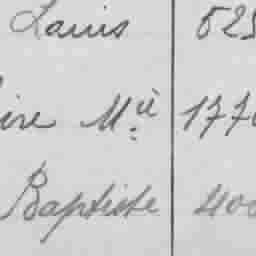 Louis 525
ire Mie 1770
Baptiste 400